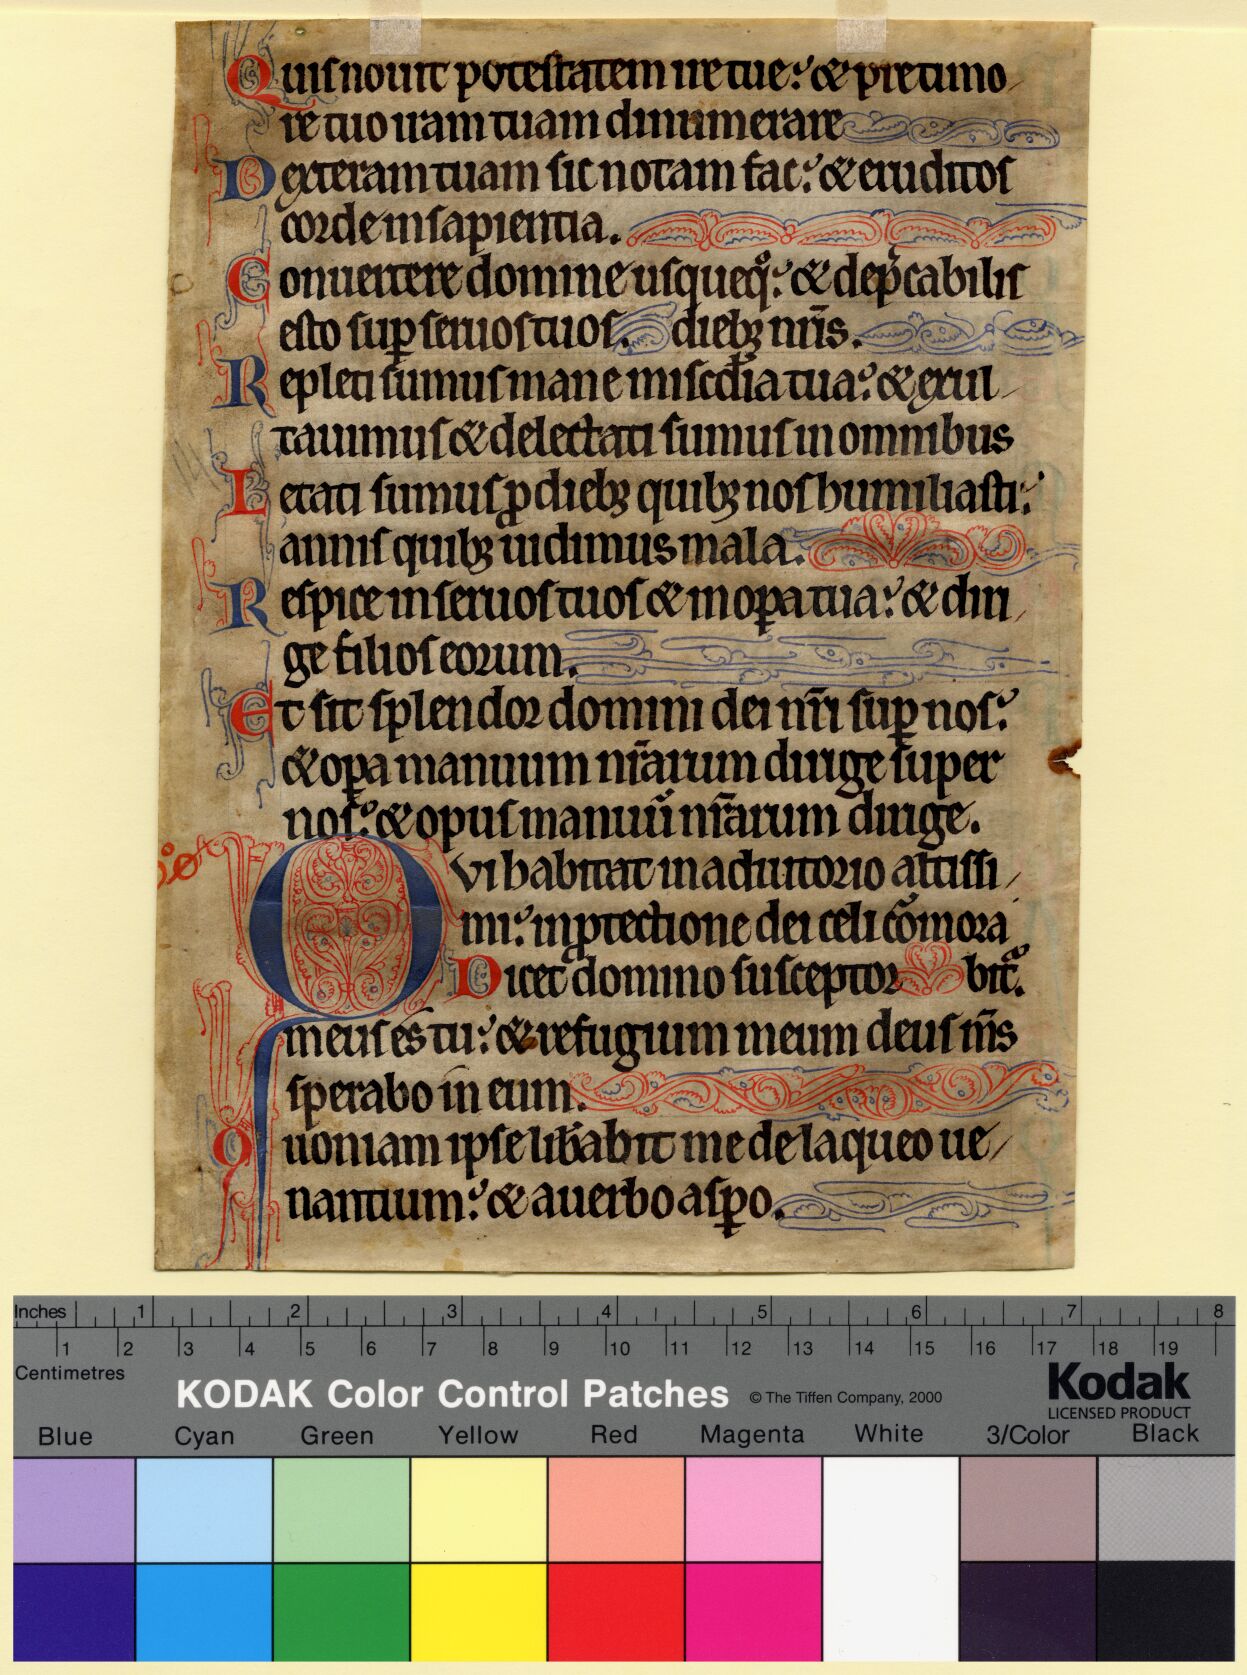 Quiſ nouit poteſtatem ire tue: & pre timo
re tuo iram tuam dinumerare
Dexteram tuam ſic notam fac: & eruditoſ
corde in ſapientia.
Conuertere domine uſqueq͛o: & dep̄cabiliſ
eſto ſuꝑ ſeruoſ tuoſ. diebꝫ nr̄iſ.
Repleti ſumuſ mane miſcd̄ia tua: & exul
tauimuſ & delectati ſumuſ in omnibus
Letati ſumuſ ꝓ diebꝫ quibꝫ noſ humiliaſti:
anniſ quibꝫ uidimus mala.
Reſpice in ſeruoſ tuoſ & in oꝑa tua: & diri
ge filioſ eorum.
Et ſit ſplendor domini dei nr̄i ſuꝑ noſ:
& oꝑa manuum nr̄arum dirige ſuper
noſ: & opuſ manuū nr̄arum dirige.
Qvi habitat in adiutorio altiſſi
mi: in ꝓtectione dei celi cōmora
Dicet domino ſuſceptor bit᷑.
meuſ es tu: & refugium meum deuſ m̄s
ſperabo in eum.
Quoniam ipſe lib̄abit me de laqueo ue
nantium: & a uerbo aſꝑo.
Inches 1 2 3 4 5 6 7 8
1 2 3 4 5 6 7 8 9 10 11 12 13 14 15 16 17 18 19
Centimetres
KODAK Color Control Patches © The Tiffen Company, 2000
Kodak
LICENSED PRODUCT
Blue Cyan Green Yellow Red Magenta White 3/Color Black